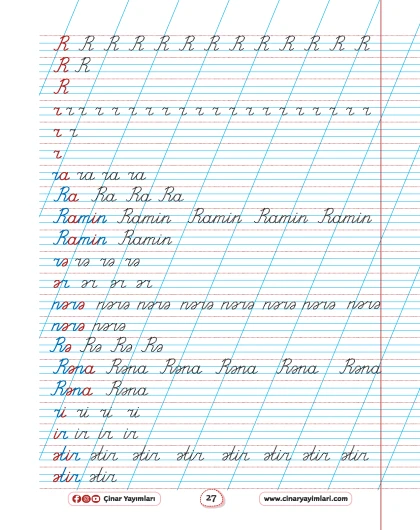 R R R R R R R R R R R R R
R R
R
r r r r r r r r r r r r r r r r r r r r
r r
r
ra ra ra ra
Ra Ra Ra Ra
Ramin Ramin Ramin Ramin Ramin
Ramin Ramin
rə rə rə rə
ər ər ər ər
nərə nərə nərə nərə nərə nərə nərə nərə
nərə nərə
Rə Rə Rə Rə
Rəna Rəna Rəna Rəna Rəna Rəna
Rəna Rəna
ri ri ri ri
ir ir ir ir
ətir ətir ətir ətir ətir ətir ətir ətir
ətir ətir
Çinar Yayımları 27 www.cinaryayimlari.com